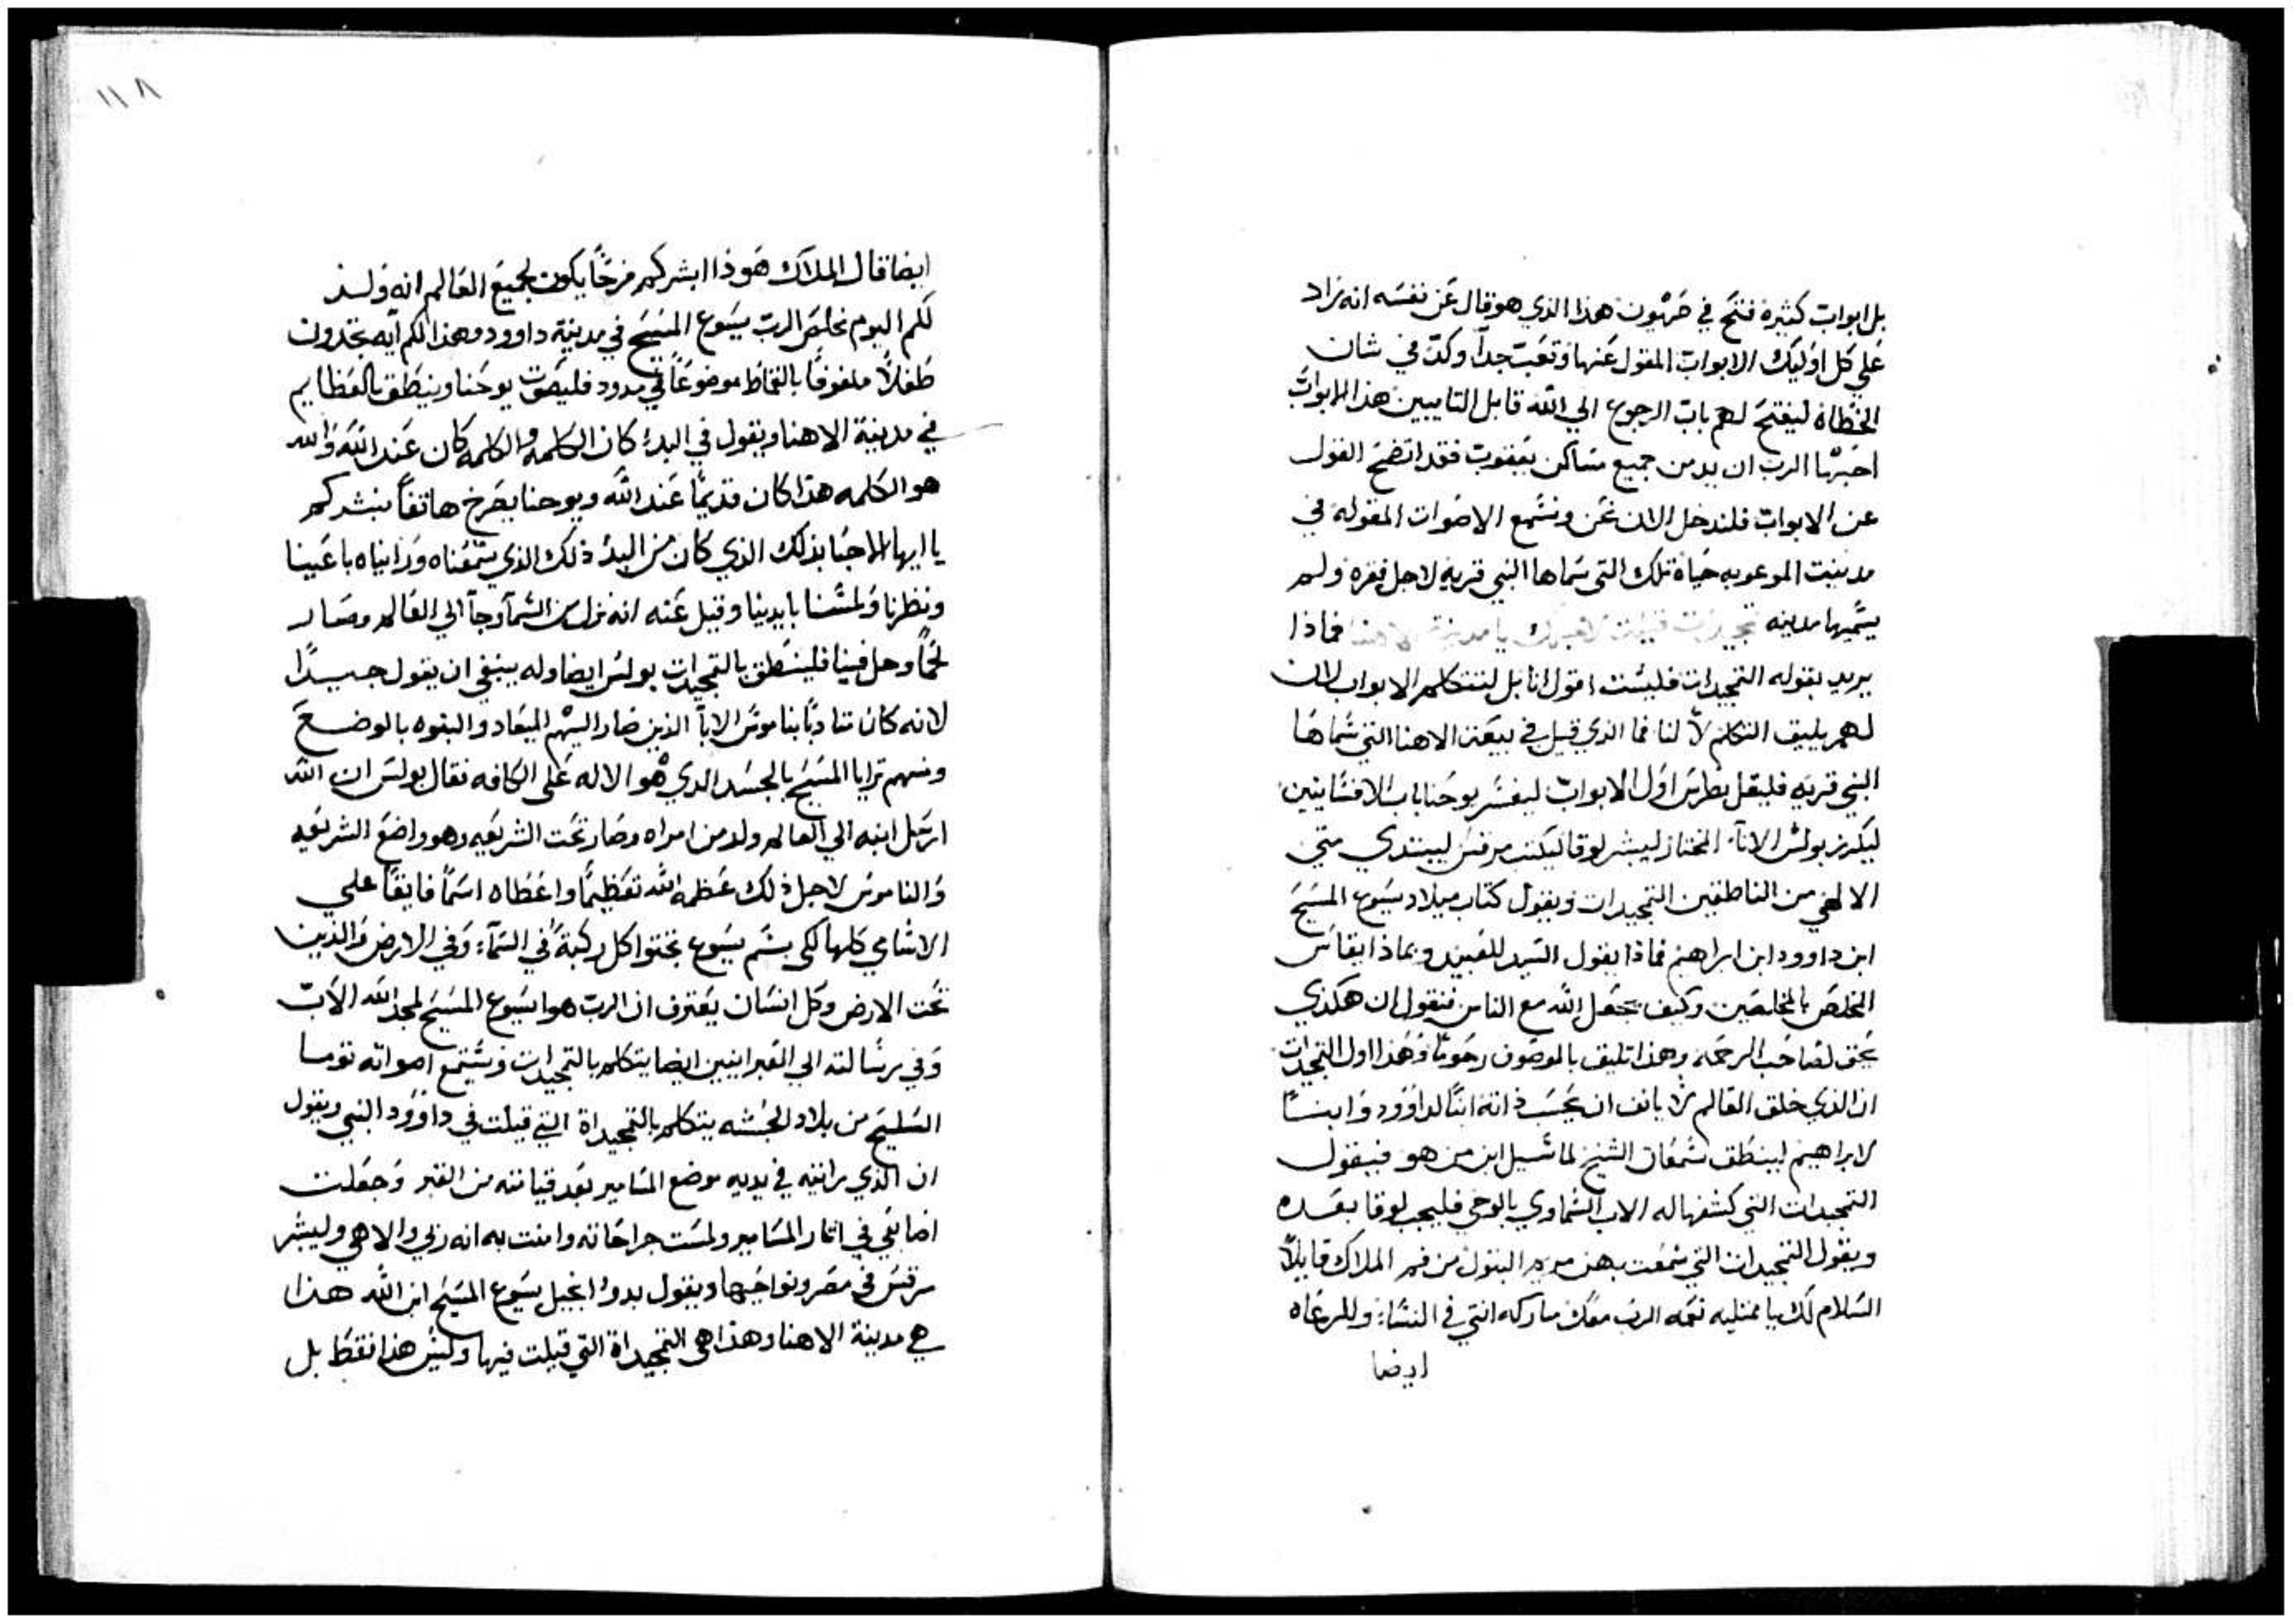 بل ابواب كثيره فتح في صهيون هذا الذي هو قال عن نفسه انه زاد
علي كل اوليك الابواب المقول عنها وتعب جداً وكدّ في شان
الخطاه ليفتح لهم باب الرجوع الي الله قابل التايبين هذا الابواب
احبها الرب ازيد من جميع مساكن يعقوب فقد اتضح القول
عن الابواب فلندخل الان نحن ونسمع الاصوات المقوله في
مدينت الموعوبه حياة تلك التي سماها النبي قريه لاجل فقره ولم
يسميها مدينه تمجيدات قيلت لاجلك يا مدينة الاهنا فماذا
يريد بقوله التمجيدات فليست اقول انا بل لتتكلم الابواب لان
لهم يليق التكلم لا لنا فما الذي قيل في بيعة الاهنا التي سماها
النبي قريه فليقل بطرس اول الابواب ليفسر يوحنا باب الافسانيين
ليكرز بولس الاناء المختار ليبشر لوقا ليكتب مرقس ليبتدي متي
الالهي من الناطقين التمجيدات ويقول كتاب ميلاد يسوع المسيح
ابن داوود ابن ابراهيم فماذا يقول السيد للعبيد وبماذا يقاس
المخلص بالمخلصين وكيف يجعل الله مع الناس فنقول ان هكذي
يحق لصاحب الرحمه وهذا تليق بالموصوف رحوماً وهذا اول التمجيدات
ان الذي خلق العالم لا يانف ان يحسب ذاته ابناً لداوود وابنـاً
لابراهيم لينطق سمعان الشيخ لما سيل ابن من هو فيقول
التمجيدات التي كشفها له الاب السماوي بالوحي فليجب لوقا بعده
ويقول التمجيدات التي سمعت بهن مريم البتول من فم الملاك قايلاً
السلام لك يا ممتليه نعمه الرب معك مباركه انتي في النساء وللرعاه
ايضا
١١٨
ايضا قال الملاك هوذا ابشركم فرحاً يكون لجميع العالم انه ولد
لكم اليوم مخلص الرب يسوع المسيح في مدينة داوود وهذا لكم آيه تجدون
طفلاً ملفوفاً بالقماط موضوعاً في مدود فليصوت يوحنا وينطق بالعظايم
في مدينة الاهنا ويقول في البدء كان الكلمه والكلمه كان عند الله والله
هو الكلمه هذا كان قديماً عند الله ويوحنا يصرخ هاتفاً نبشركم
يا ايها الاحبا بذلك الذي كان من البدء ذلك الذي سمعناه ورايناه باعينا
ونظرنا ولمسنا بايدينا وقيل عنه انه نزل من السماء وجاء الي العالم وصار
لحماً وحل فينا فلينطق بالتمجيدات بولس ايضا وله ينبغي ان يقول جيـداً
لانه كان متادباً بناموس الاباء الذين صار اليهم الميعاد والبنوه بالوضع
ومنهم ترايا المسيح بالجسد الدي هو الاله على الكافه فقال بولس ان الله
ارسل ابنه الي العالم ولد من امراه وصار تحت الشريعه وهو واضع الشريعه
والناموس لاجل ذلك عظمه الله تعظيماً واعطاه اسماً فايقاً علي
الاسامي كلها لكي بسم يسوع تجثوا كل ركبة في السماء وفي الارض والذين
تحت الارض وكل انسان يعترف ان الرب هو ايسوع المسيح لمجد الله الاب
وفي رسالته الي العبرانيين ايضا يتكلم بالتمجيدات وتسمع اصواته توما
السليح من بلاد الحبشه يتكلم بالتمجيداة التي قيلت في داوود النبي ويقول
ان الذي رايته في يديه موضع المسامير بعد قيامته من القبر وجعلت
اصابعي في اثار المسامير ولمست جراحاته وامنت به انه ربي والاهي وليبشر
مرقس في مصر ونواحيها ويقول بدوء انجيل يسوع المسيح ابن الله هذا
هي مدينة الاهنا وهذا هي التمجيداة التي قيلت فيها وليس هذا فقط بل